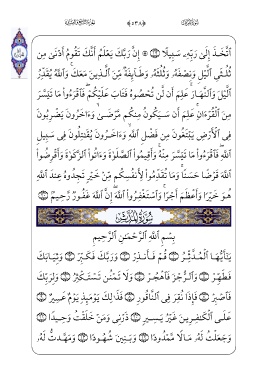 ٱتَّخَذَ إِلَىٰ رَبِّهِۦ سَبِيلًا ۝ إِنَّ رَبَّكَ يَعْلَمُ أَنَّكَ تَقُومُ أَدْنَىٰ مِن
ثُلُثَىِ ٱلَّيْلِ وَنِصْفَهُۥ وَثُلُثَهُۥ وَطَآئِفَةٌ مِّنَ ٱلَّذِينَ مَعَكَ ۚ وَٱللَّهُ يُقَدِّرُ
ٱلَّيْلَ وَٱلنَّهَارَ ۚ عَلِمَ أَن لَّن تُحْصُوهُ فَتَابَ عَلَيْكُمْ ۖ فَٱقْرَءُوا۟ مَا تَيَسَّرَ
مِنَ ٱلْقُرْءَانِ ۚ عَلِمَ أَن سَيَكُونُ مِنكُم مَّرْضَىٰ ۙ وَءَاخَرُونَ يَضْرِبُونَ
فِى ٱلْأَرْضِ يَبْتَغُونَ مِن فَضْلِ ٱللَّهِ ۙ وَءَاخَرُونَ يُقَٰتِلُونَ فِى سَبِيلِ
ٱللَّهِ ۖ فَٱقْرَءُوا۟ مَا تَيَسَّرَ مِنْهُ ۚ وَأَقِيمُوا۟ ٱلصَّلَوٰةَ وَءَاتُوا۟ ٱلزَّكَوٰةَ وَأَقْرِضُوا۟
ٱللَّهَ قَرْضًا حَسَنًا ۚ وَمَا تُقَدِّمُوا۟ لِأَنفُسِكُم مِّنْ خَيْرٍ تَجِدُوهُ عِندَ ٱللَّهِ
هُوَ خَيْرًا وَأَعْظَمَ أَجْرًا ۚ وَٱسْتَغْفِرُوا۟ ٱللَّهَ ۖ إِنَّ ٱللَّهَ غَفُورٌ رَّحِيمٌ ۝
سُورَةُ ٱلْمُدَّثِّرِ
بِسْمِ ٱللَّهِ ٱلرَّحْمَٰنِ ٱلرَّحِيمِ
يَٰٓأَيُّهَا ٱلْمُدَّثِّرُ ۝ قُمْ فَأَنذِرْ ۝ وَرَبَّكَ فَكَبِّرْ ۝ وَثِيَابَكَ
فَطَهِّرْ ۝ وَٱلرُّجْزَ فَٱهْجُرْ ۝ وَلَا تَمْنُن تَسْتَكْثِرُ ۝ وَلِرَبِّكَ
فَٱصْبِرْ ۝ فَإِذَا نُقِرَ فِى ٱلنَّاقُورِ ۝ فَذَٰلِكَ يَوْمَئِذٍ يَوْمٌ عَسِيرٌ ۝
عَلَى ٱلْكَٰفِرِينَ غَيْرُ يَسِيرٍ ۝ ذَرْنِى وَمَنْ خَلَقْتُ وَحِيدًا ۝
وَجَعَلْتُ لَهُۥ مَالًا مَّمْدُودًا ۝ وَبَنِينَ شُهُودًا ۝ وَمَهَّدتُّ لَهُۥ